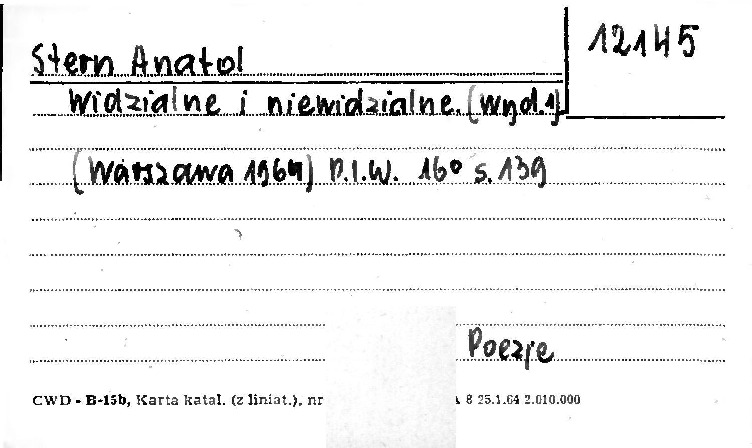 12145
Stern Anatol
Widzialne i niewidzialne. (Wyd.1)
(Warszawa 1964) P.I.W. 16° s.139
Poezje
CWD - B-15b, Karta katal. (z liniat.), nr A 8 25.1.64 2.010.000